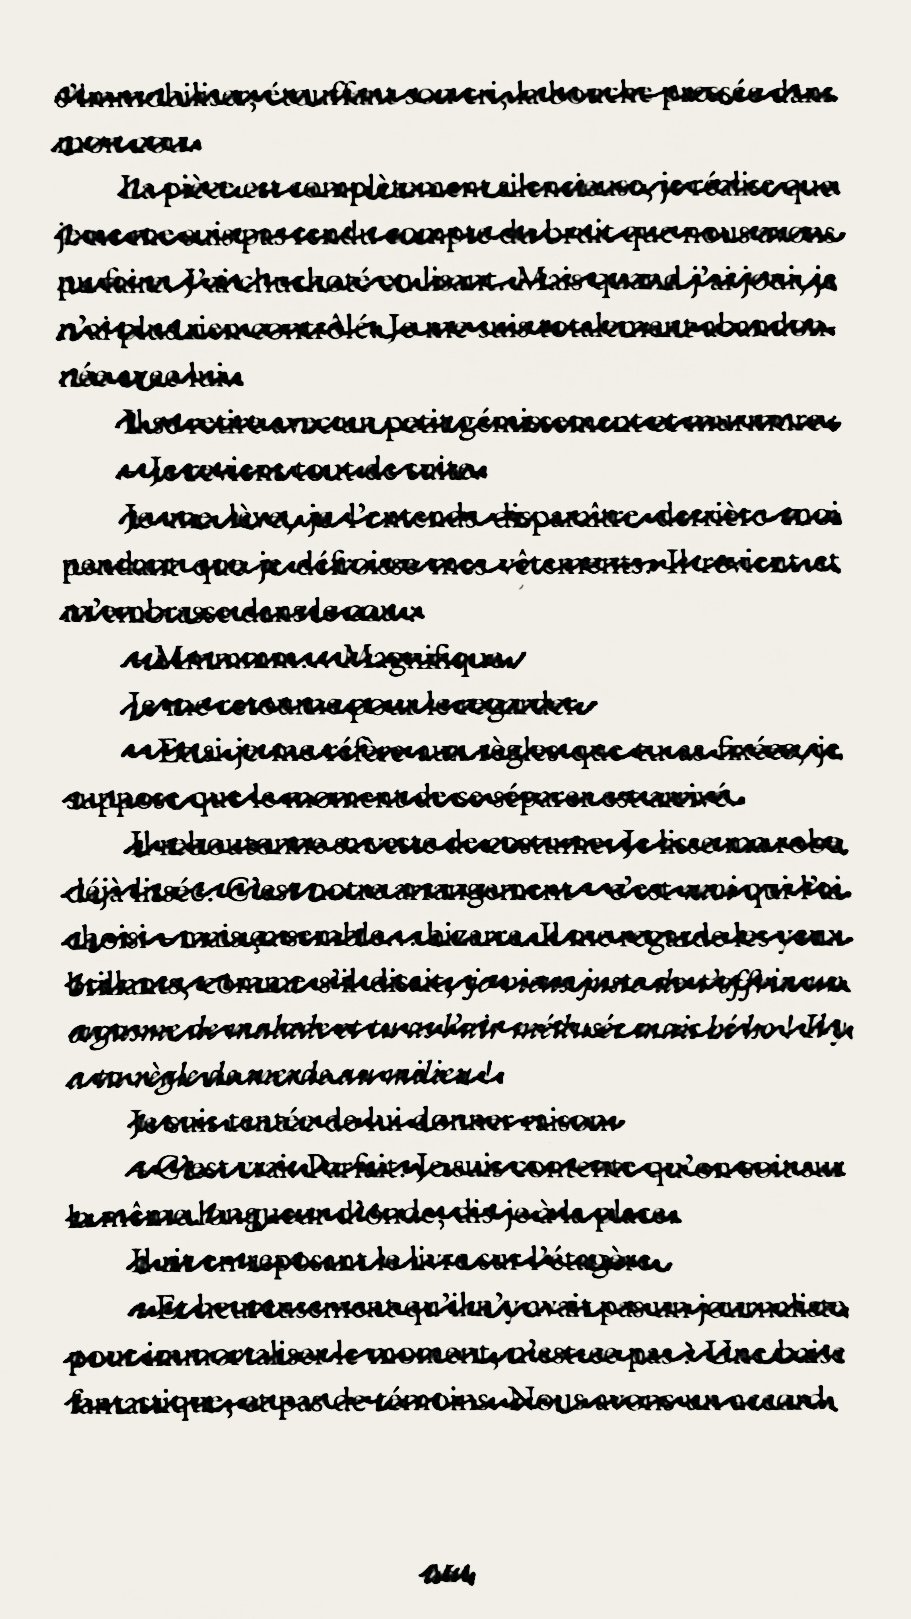 s'immobiliser, étouffant son cri, la bouche pressée dans
mon cou.
La pièce est complètement silencieuse, je réalise que
je ne me suis pas rendu compte du bruit que nous avons
pu faire. J'ai chuchoté en lisant. Mais quand j'ai joui, je
n'ai plus rien contrôlé. Je me suis totalement abandon-
née avec lui.
Il se retire avec un petit gémissement et murmure :
– Je reviens tout de suite.
Je me lève, je l'entends disparaître derrière moi
pendant que je défroisse mes vêtements. Il revient et
m'embrasse dans le cou :
– Mmmmm… Magnifique.
Je me retourne pour le regarder.
– Et si je me réfère aux règles que tu as fixées, je
suppose que le moment de se séparer est arrivé.
Il reboutonne sa veste de costume. Je lisse ma robe,
déjà lissée. C'est notre arrangement – c'est moi qui l'ai
choisi – mais ça semble… bizarre. Il me regarde les yeux
brillants, comme s'il disait, je viens juste de t'offrir un
orgasme de malade et tu as l'air médusée mais bébé ! Il y
a ta règle de merde au milieu !
Je suis tentée de lui donner raison.
– C'est vrai. Parfait. Je suis contente qu'on soit sur
la même longueur d'onde, dis-je à la place.
Il rit en reposant le livre sur l'étagère.
– Et heureusement qu'il n'y avait pas un journaliste
pour immortaliser le moment, n'est-ce pas ? Une baise
fantastique, et pas de témoins. Nous avons un accord.